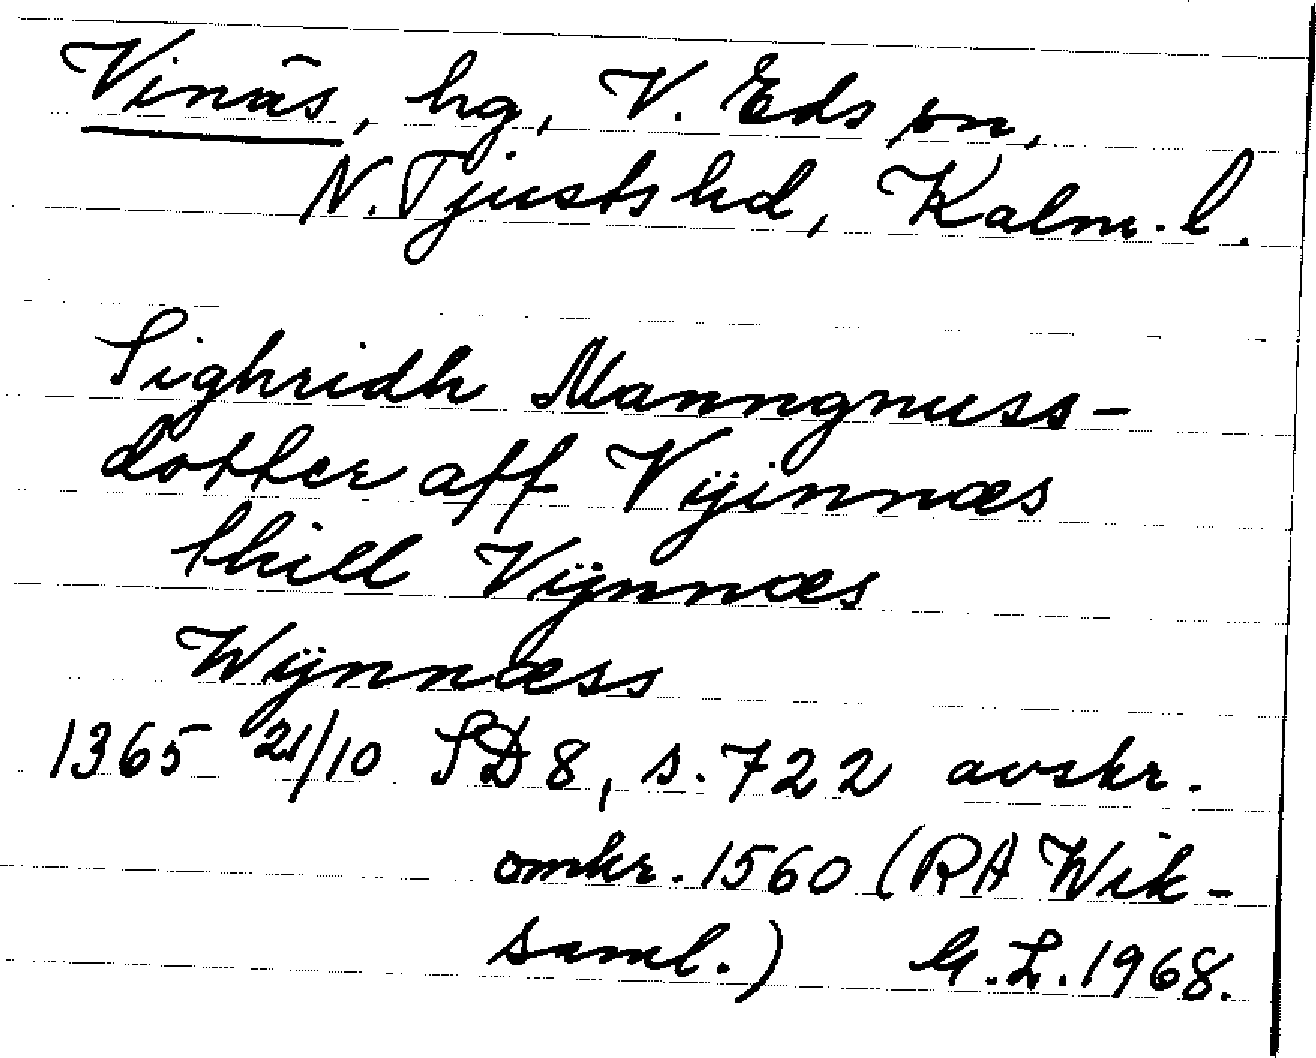 Vinäs, hg, V. Eds sn,
N. Tjusts hd, Kalm. l.
Sighridh Manngnuss-
dotter aff Vÿinnæs
thill Vÿnnæs
Wÿnnæss
1365 21/10 SD 8, s. 722 avskr.
omkr. 1560 (RA Wik-
saml.) G. L. 1968.